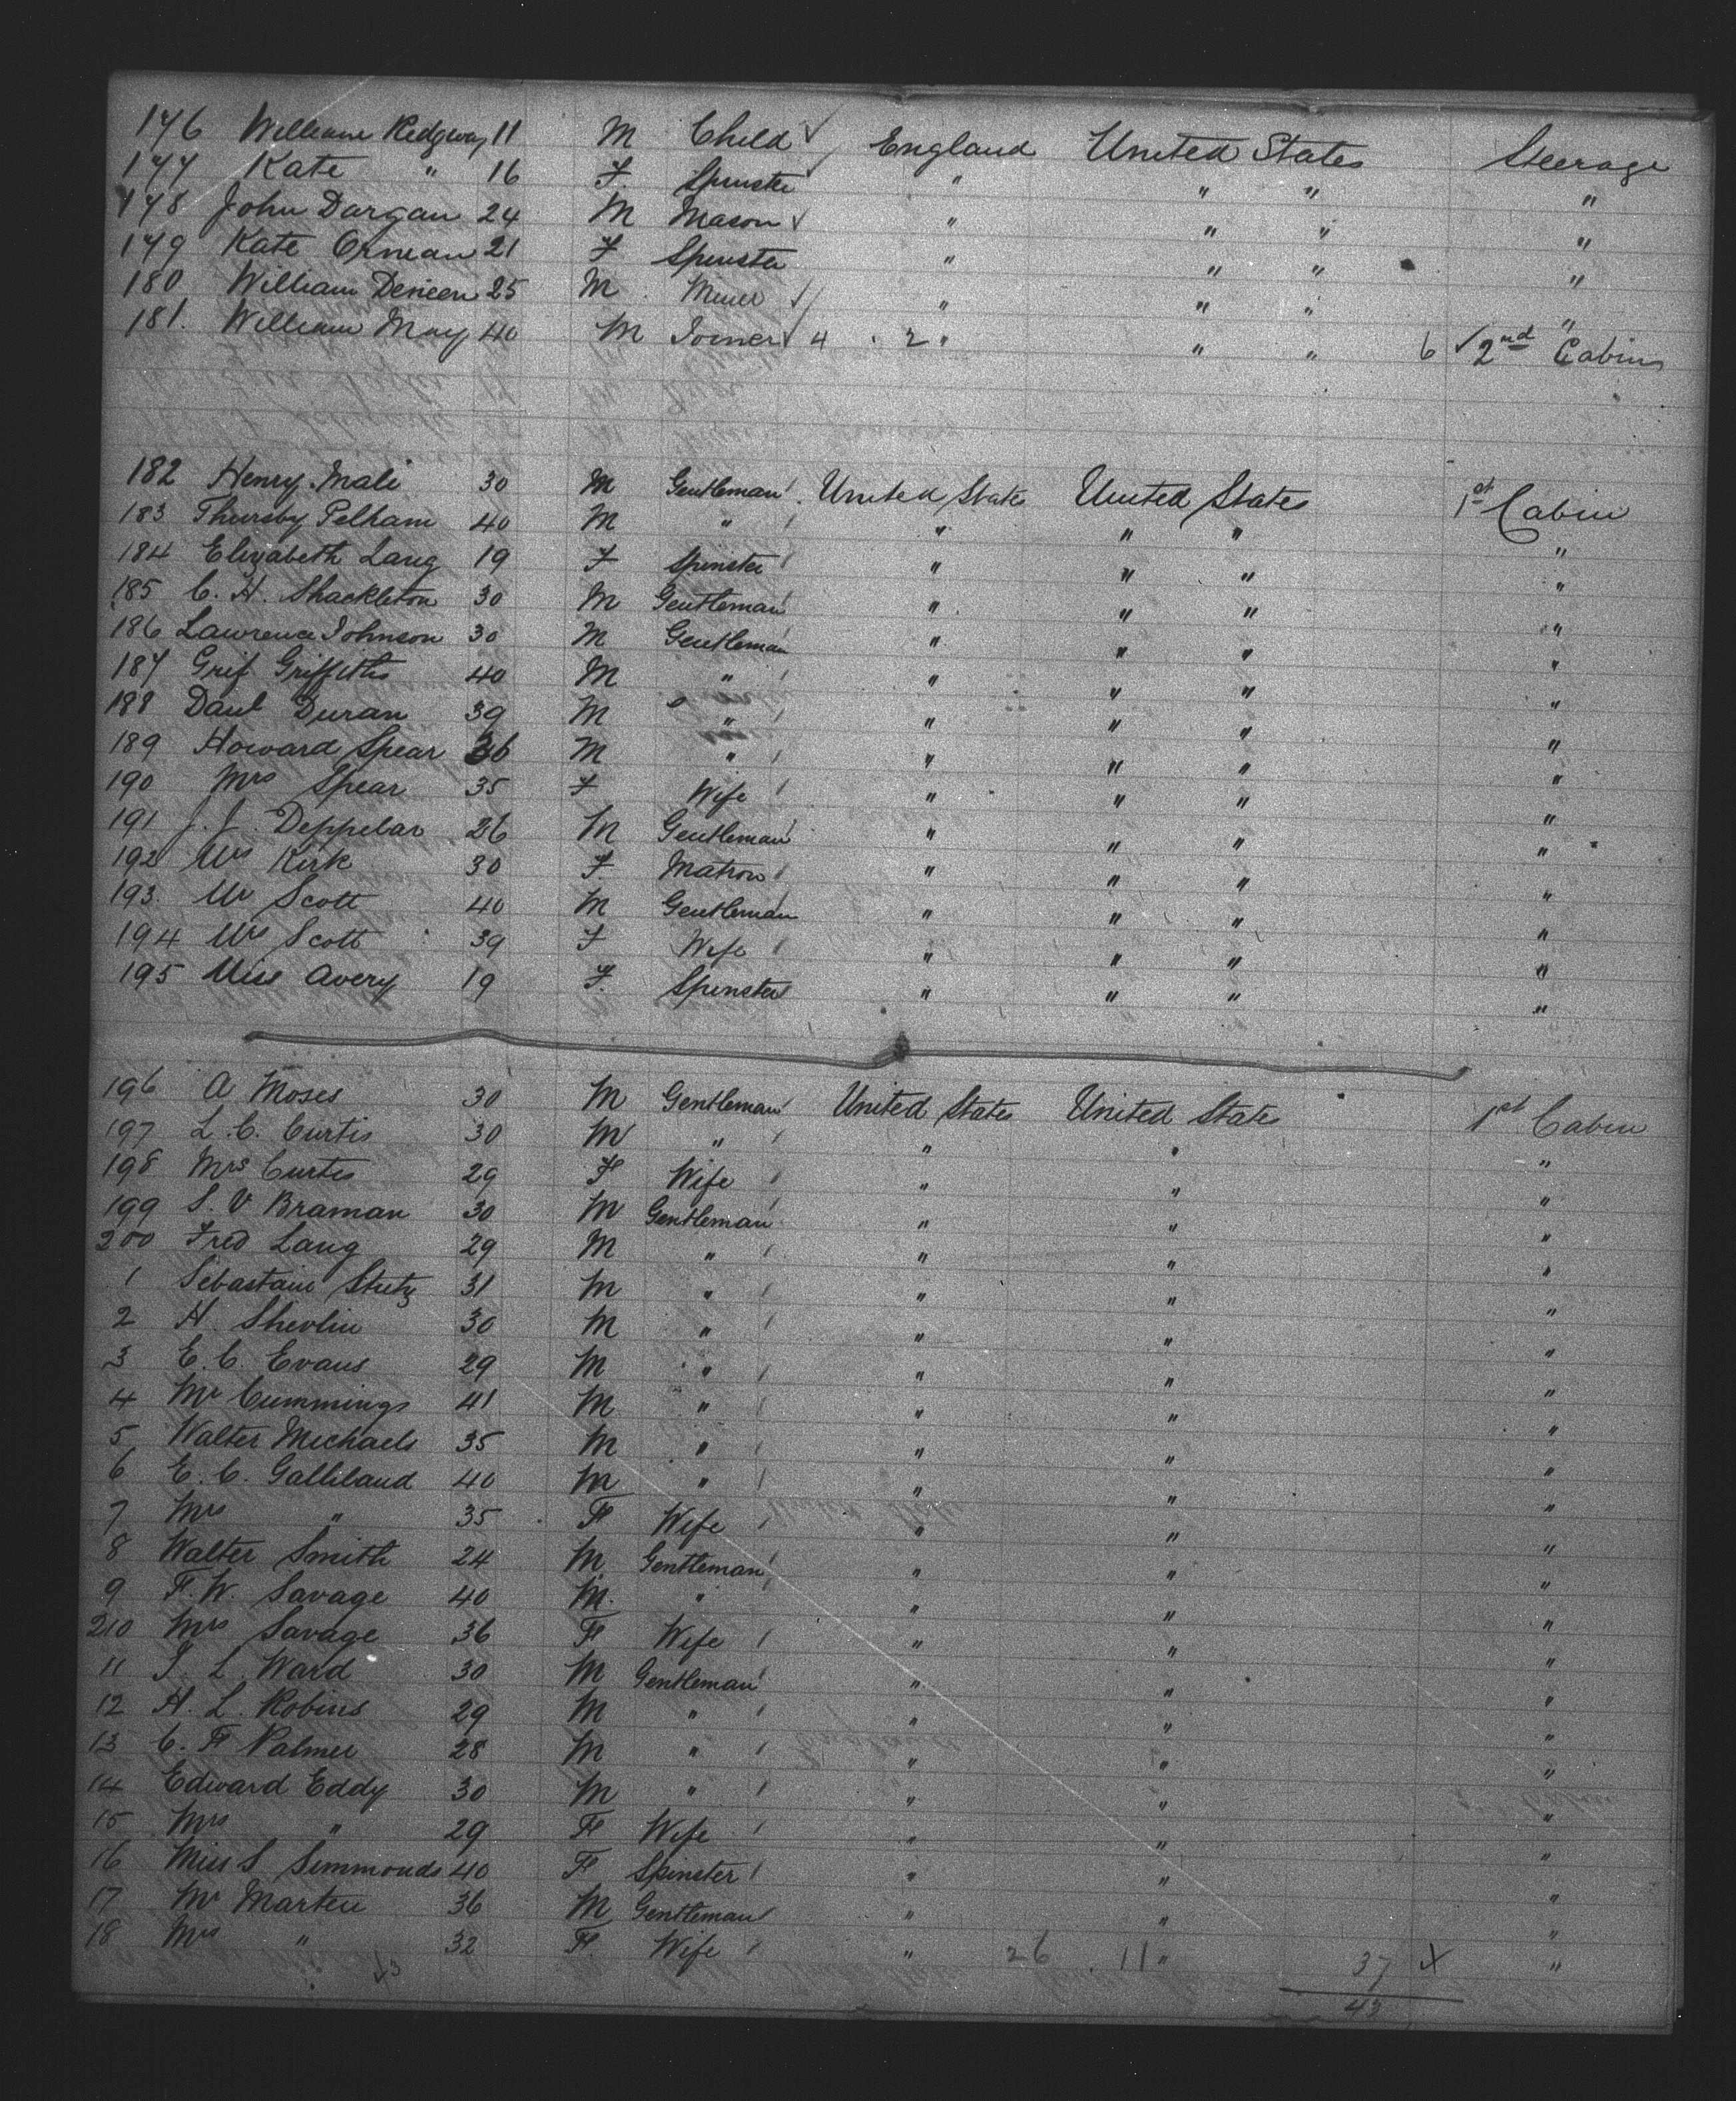 176 William Ridgway 11 M Child ✓ England United States Steerage
177 Kate " 16 F. Spinster " " " "
178 John Dargan 24 M Mason ✓ " " " "
179 Kate 21 F Spinster " " " "
180 William 25 M Miner ✓ " " " "
181. William May 40 M Joiner ✓ 4 2 " " " 6 ✓ 2nd Cabin
182 Henry Mali 30 M Gentleman United States United States 1st Cabin
183 Thursby Pelham 40 M " " " " "
184 Elizabeth Lang 19 F Spinster " " " "
185 C. H. Shackleton 30 M Gentleman " " " "
186 Lawrence Johnson 30 M Gentleman " " " "
187 Grif Griffiths 40 M " " " " "
188 Paul Duran 39 M " " " " "
189 Howard Spear 36 M " " " " "
190 Mrs Spear 35 F Wife " " " "
191 J. J. Deppelar 26 M Gentleman " " " "
192 Mrs Kirk 30 F. Matron " " " "
193. Mr Scott 40 M Gentleman " " " "
194 Mrs Scott 39 F Wife " " " "
195 Miss Avery 19 F. Spinster " " " "
196 A Moses 30 M Gentleman United States United States 1st Cabin
197 L. C. Curtis 30 M " " " "
198 Mrs Curtis 29 F Wife " " "
199 S. V Braman 30 M Gentleman " " "
200 Fred Lang 29 M " " " "
1 Sebastain Stutz 31 M " " " "
2 H. Shevlin 30 M " " " "
3 E. C. Evans 29 M " " " "
4 Mr Cummings 41 M " " " "
5 Walter Michaels 35 M " " " "
6 E. C. Galliland 40 M " " " "
7 Mrs " 35 F Wife " " "
8 Walter Smith 24 M Gentleman " " "
9 F. W. Savage 40 M. " " " "
210 Mrs Savage 36 F Wife " " "
11 L. Ward 30 M Gentleman " " "
12 H. L. Robins 29 M " " " "
13 C. F Palmer 28 M " " " "
14 Edward Eddy 30 M " " " "
15 Mrs " 29 F Wife " " "
16 Miss S Simmonds 40 F Spinster " " "
17 Mr Marten 36 M Gentleman " " "
18 Mrs " 32 F. Wife " 26 11 " 37 X "
43